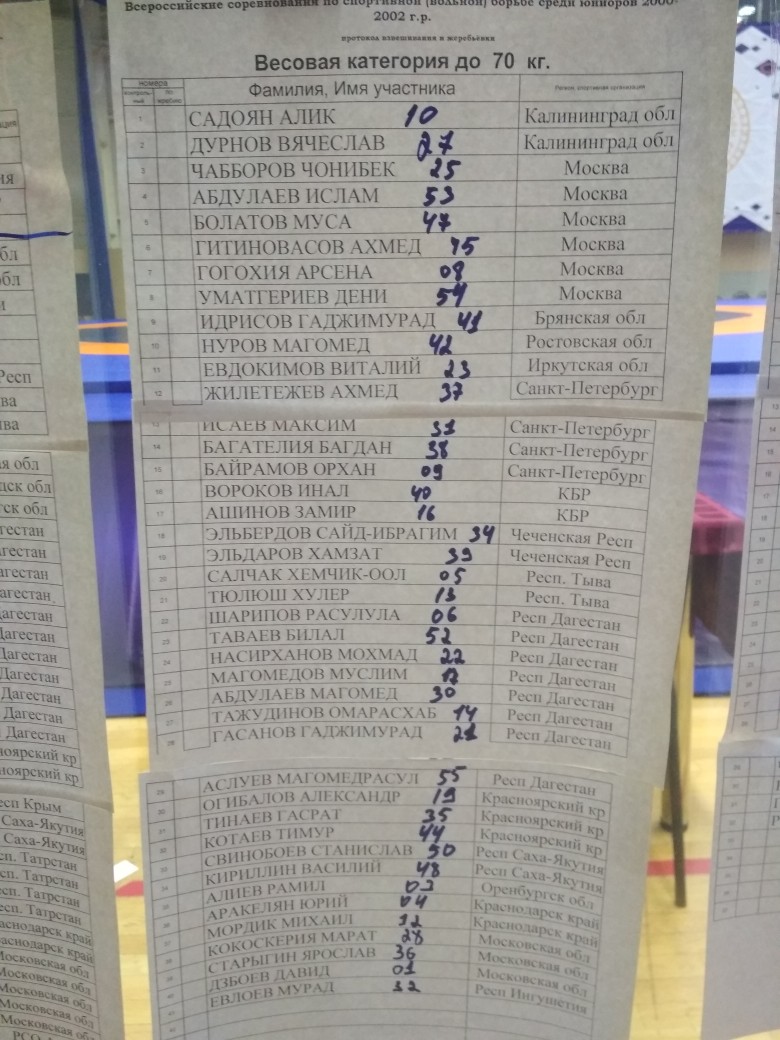 Всероссийские соревнования по спортивной (вольной) борьбе среди юниоров 2000-
2002 г.р.
протокол взвешивания и жеребьёвки
Весовая категория до 70 кг.
номера
Фамилия, Имя участника
Регион, спортивная организация
1 САДОЯН АЛИК 10 Калининград обл
2 ДУРНОВ ВЯЧЕСЛАВ 27 Калининград обл
3 ЧАББОРОВ ЧОНИБЕК 25 Москва
4 АБДУЛАЕВ ИСЛАМ 53 Москва
5 БОЛАТОВ МУСА 47 Москва
6 ГИТИНОВАСОВ АХМЕД 45 Москва
7 ГОГОХИЯ АРСЕНА 08 Москва
8 УМАТГЕРИЕВ ДЕНИ 54 Москва
9 ИДРИСОВ ГАДЖИМУРАД 41 Брянская обл
10 НУРОВ МАГОМЕД 42 Ростовская обл
11 ЕВДОКИМОВ ВИТАЛИЙ 23 Иркутская обл
12 ЖИЛЕТЕЖЕВ АХМЕД 37 Санкт-Петербург
13 ИСАЕВ МАКСИМ 31 Санкт-Петербург
14 БАГАТЕЛИЯ БАГДАН 38 Санкт-Петербург
15 БАЙРАМОВ ОРХАН 09 Санкт-Петербург
16 ВОРОКОВ ИНАЛ 40 КБР
17 АШИНОВ ЗАМИР 16 КБР
18 ЭЛЬБЕРДОВ САЙД-ИБРАГИМ 34 Чеченская Респ
19 ЭЛЬДАРОВ ХАМЗАТ 39 Чеченская Респ
20 САЛЧАК ХЕМЧИК-ООЛ 05 Респ. Тыва
21 ТЮЛЮШ ХУЛЕР 13 Респ. Тыва
22 ШАРИПОВ РАСУЛУЛА 06 Респ Дагестан
23 ТАВАЕВ БИЛАЛ 52 Респ Дагестан
24 НАСИРХАНОВ МОХМАД 22 Респ Дагестан
25 МАГОМЕДОВ МУСЛИМ Респ Дагестан
26 АБДУЛАЕВ МАГОМЕД 30 Респ Дагестан
27 ТАЖУДИНОВ ОМАРАСХАБ 14 Респ Дагестан
28 ГАСАНОВ ГАДЖИМУРАД 21 Респ Дагестан
29 АСЛУЕВ МАГОМЕДРАСУЛ 55 Респ Дагестан
30 ОГИБАЛОВ АЛЕКСАНДР 19 Красноярский кр
31 ТИНАЕВ ГАСРАТ 35 Красноярский кр
32 КОТАЕВ ТИМУР 44 Красноярский кр
33 СВИНОБОЕВ СТАНИСЛАВ 50 Респ Саха-Якутия
34 КИРИЛЛИН ВАСИЛИЙ 48 Респ Саха-Якутия
АЛИЕВ РАМИЛ Оренбургск обл
АРАКЕЛЯН ЮРИЙ 04 Краснодарск край
МОРДИК МИХАИЛ 12 Краснодарск край
КОКОСКЕРИЯ МАРАТ 28 Московская обл
СТАРЫГИН ЯРОСЛАВ 36 Московская обл
ДЗБОЕВ ДАВИД 01 Московская обл
ЕВЛОЕВ МУРАД 32 Респ Ингушетия